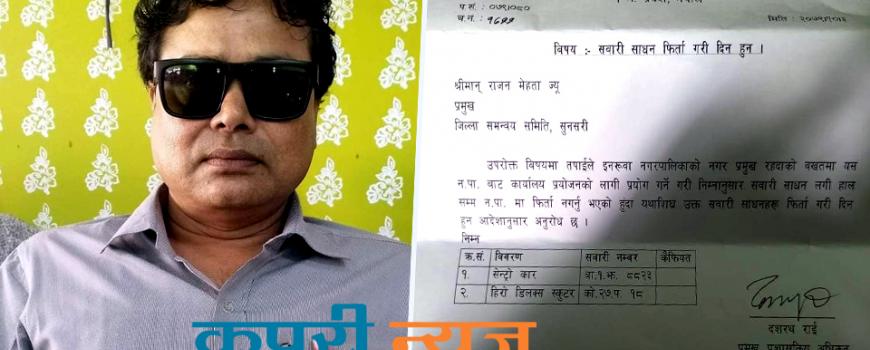 प.सं. : ०७९/०८०
च.नं. : १६९९
मिति : २०७९/१०/३
विषय :- सवारी साधन फिर्ता गरी दिन हुन ।
श्रीमान् राजन मेहता ज्यू
प्रमुख
जिल्ला समन्वय समिति, सुनसरी
उपरोक्त विषयमा तपाईले इनरूवा नगरपालिकाको नगर प्रमुख रहदाको बखतमा यस
न.पा. बाट कार्यालय प्रयोजनको लागी प्रयोग गर्ने गरी निम्नानुसार सवारी साधन लगी हाल
सम्म न.पा. मा फिर्ता नगर्नु भएको हुदा यथाशिघ्र उक्त सवारी साधनहरू फिर्ता गरी दिन
हुन आदेशानुसार अनुरोध छ ।
निम्न
क्र.सं. विवरण सवारी नम्बर कैफियत
१. सेन्ट्रो कार बा.१.झ. ८८२३
२. हिरो डिलक्स स्कुटर को.२७.प. १८
दशरथ राई
प्रमुख प्रशासकिय अधिकृत
कपुरी न्यूज